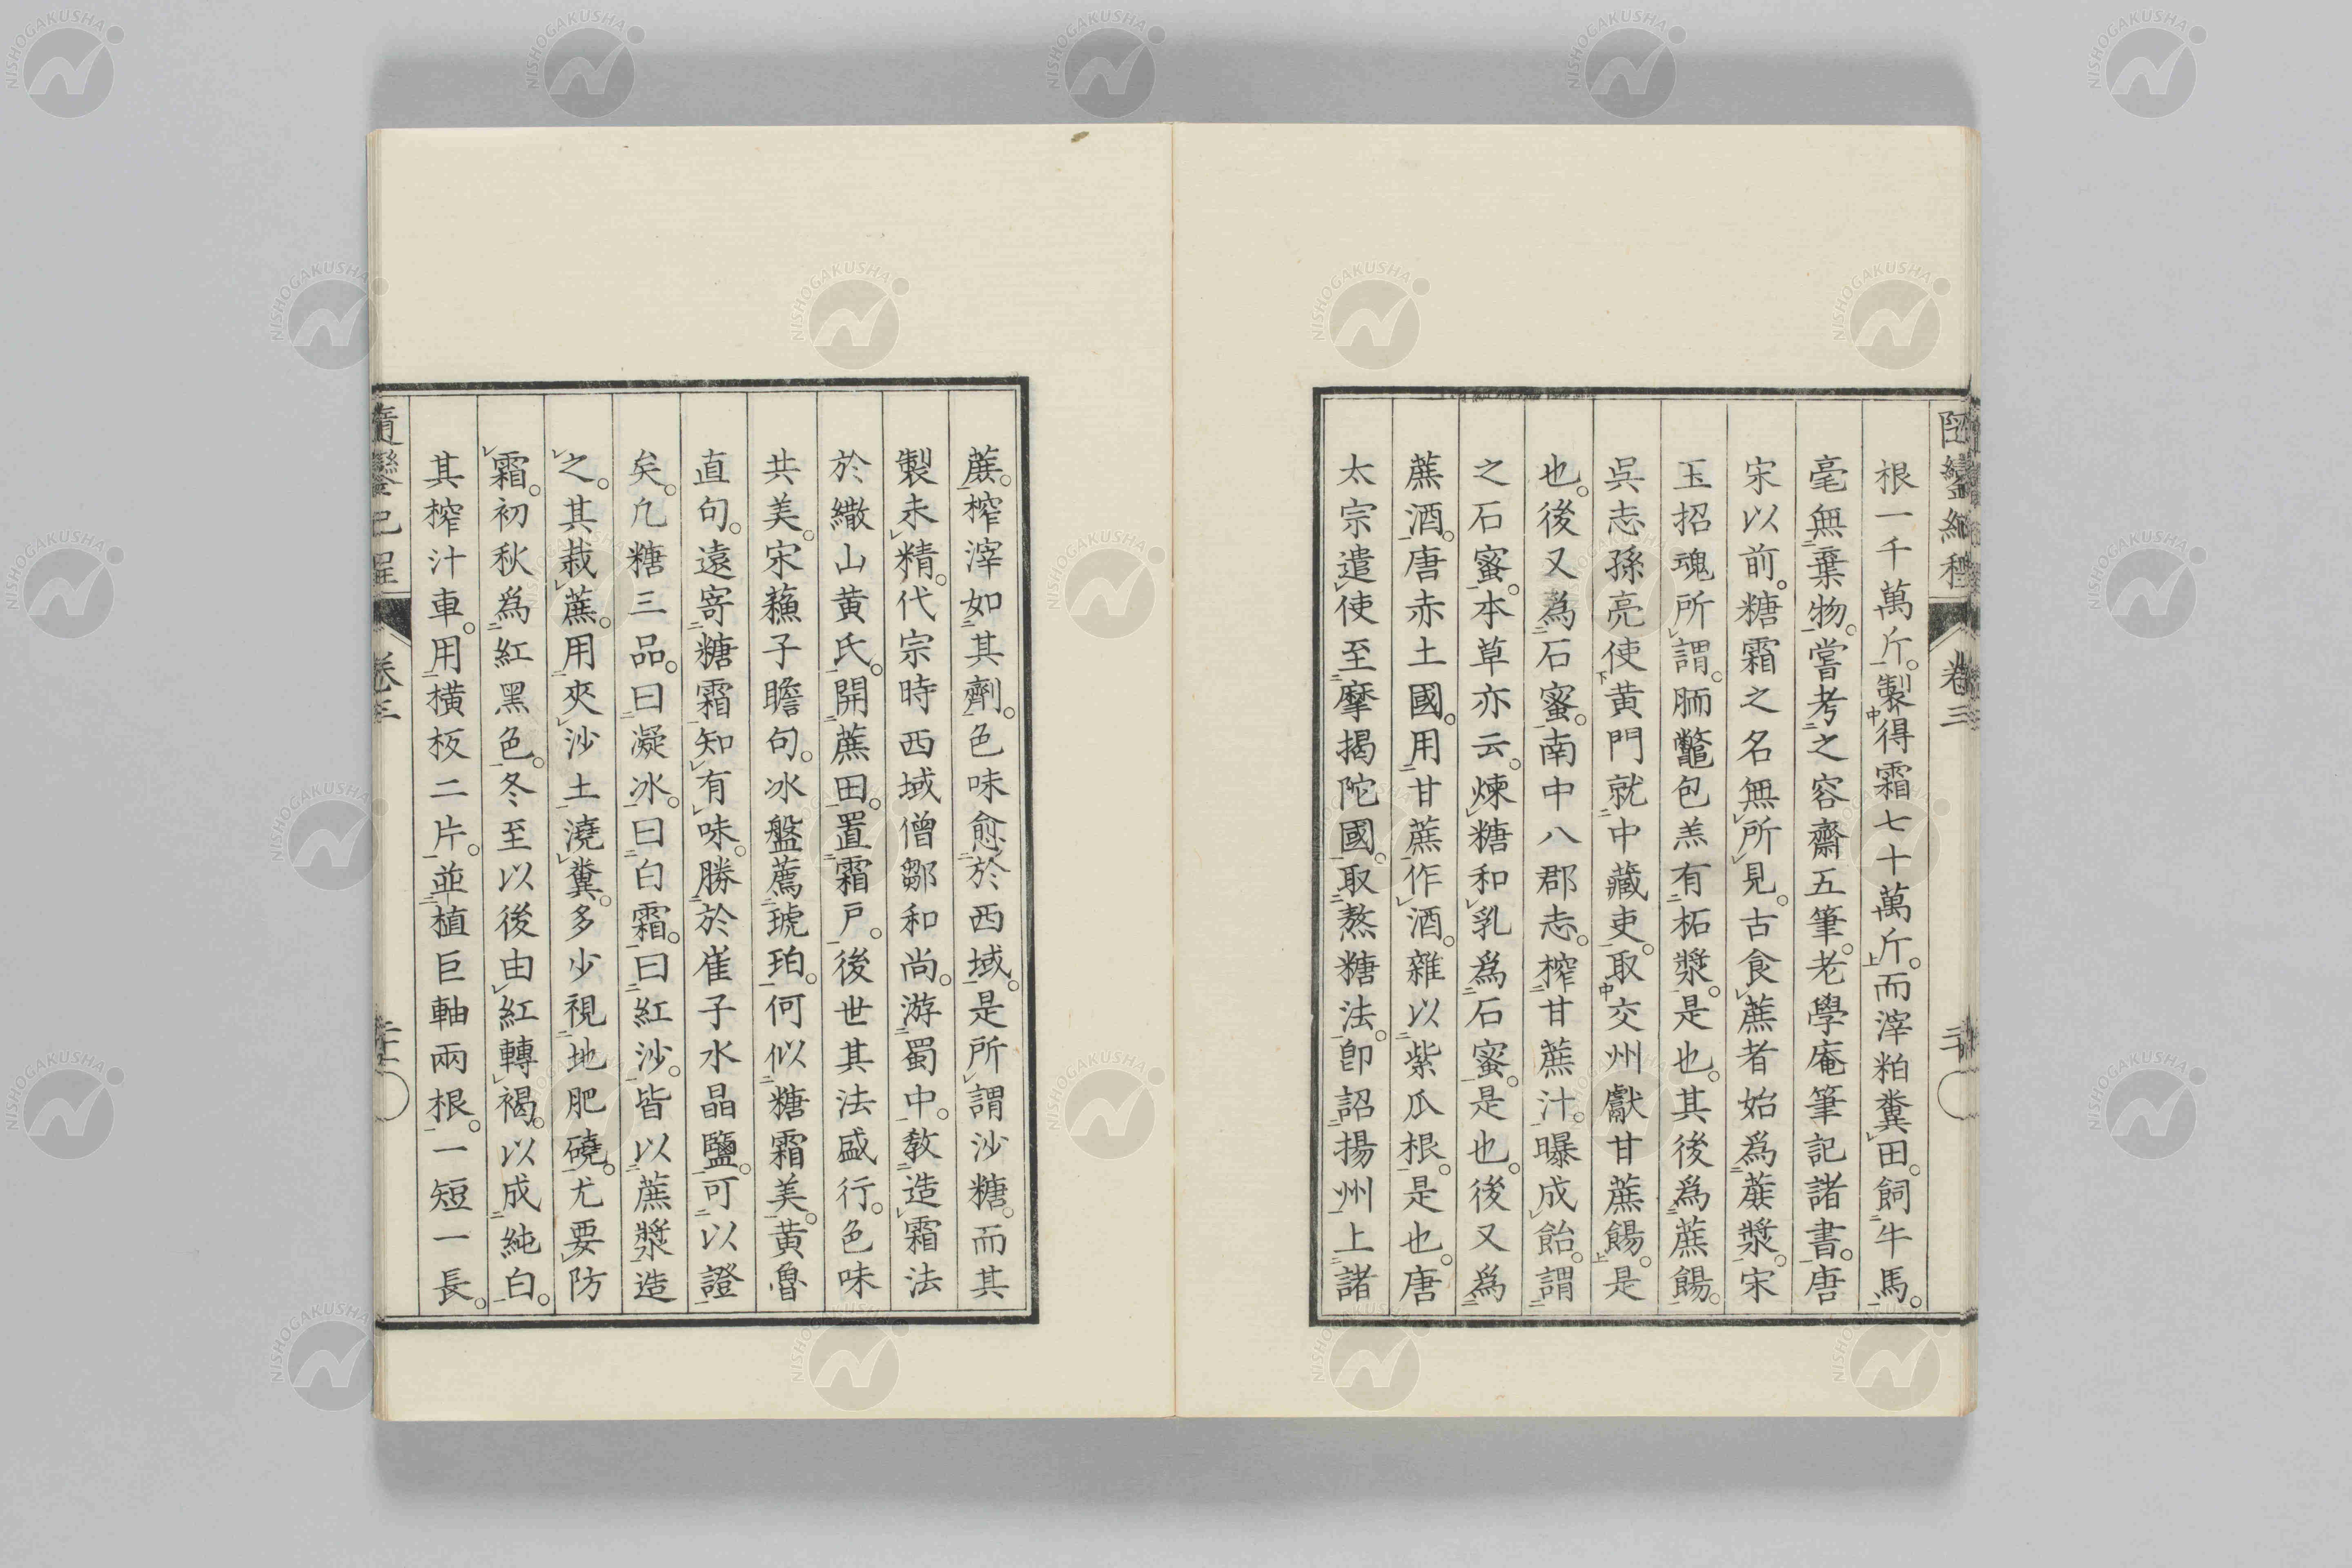 根一千萬斤。製得霜七十萬斤。而滓粕糞田。飼牛馬。
毫無棄物。嘗考之容齋五筆。老學庵筆記諸書。唐
宋以前。糖霜之名無所見。古食蔗者始爲蔗漿。宋
玉招魂所謂。胹鼈包羔有柘漿。是也。其後爲蔗餳。
吳志孫亮使黄門就中藏吏。取交州獻甘蔗餳。是
也。後又為石蜜。南中八郡志。榨甘蔗汁。曝成飴。謂
之石蜜。本草亦云。煉糖和乳爲石蜜。是也。後又爲
蔗酒。唐赤土國。用甘蔗作酒。雜以紫瓜根。是也。唐
太宗遣使至摩揭陀國。取熬糖法。卽詔揚州上諸
蔗。榨滓如其劑。色味愈於西域。是所謂沙糖。而其
製未精。代宗時西域僧鄒和尚。游蜀中。教造霜法
於繖山黄氏。開蔗田。置霜戸。後世其法盛行。色味
共美。宋蘓子瞻句。冰盤薦琥珀。何似糖霜美。黄魯
直句。遠寄糖霜知有味。勝於崔子水晶鹽。可以證
矣。凢糖三品。曰凝冰。曰白霜。曰紅沙。皆以蔗漿造
之。其栽蔗。用夾沙土澆糞。多少視地肥磽。尤要防
霜。初秋爲紅黑色。冬至以後由紅轉褐。以成純白。
其榨汁車。用橫板二片。並植巨軸兩根。一短一長。
卷三